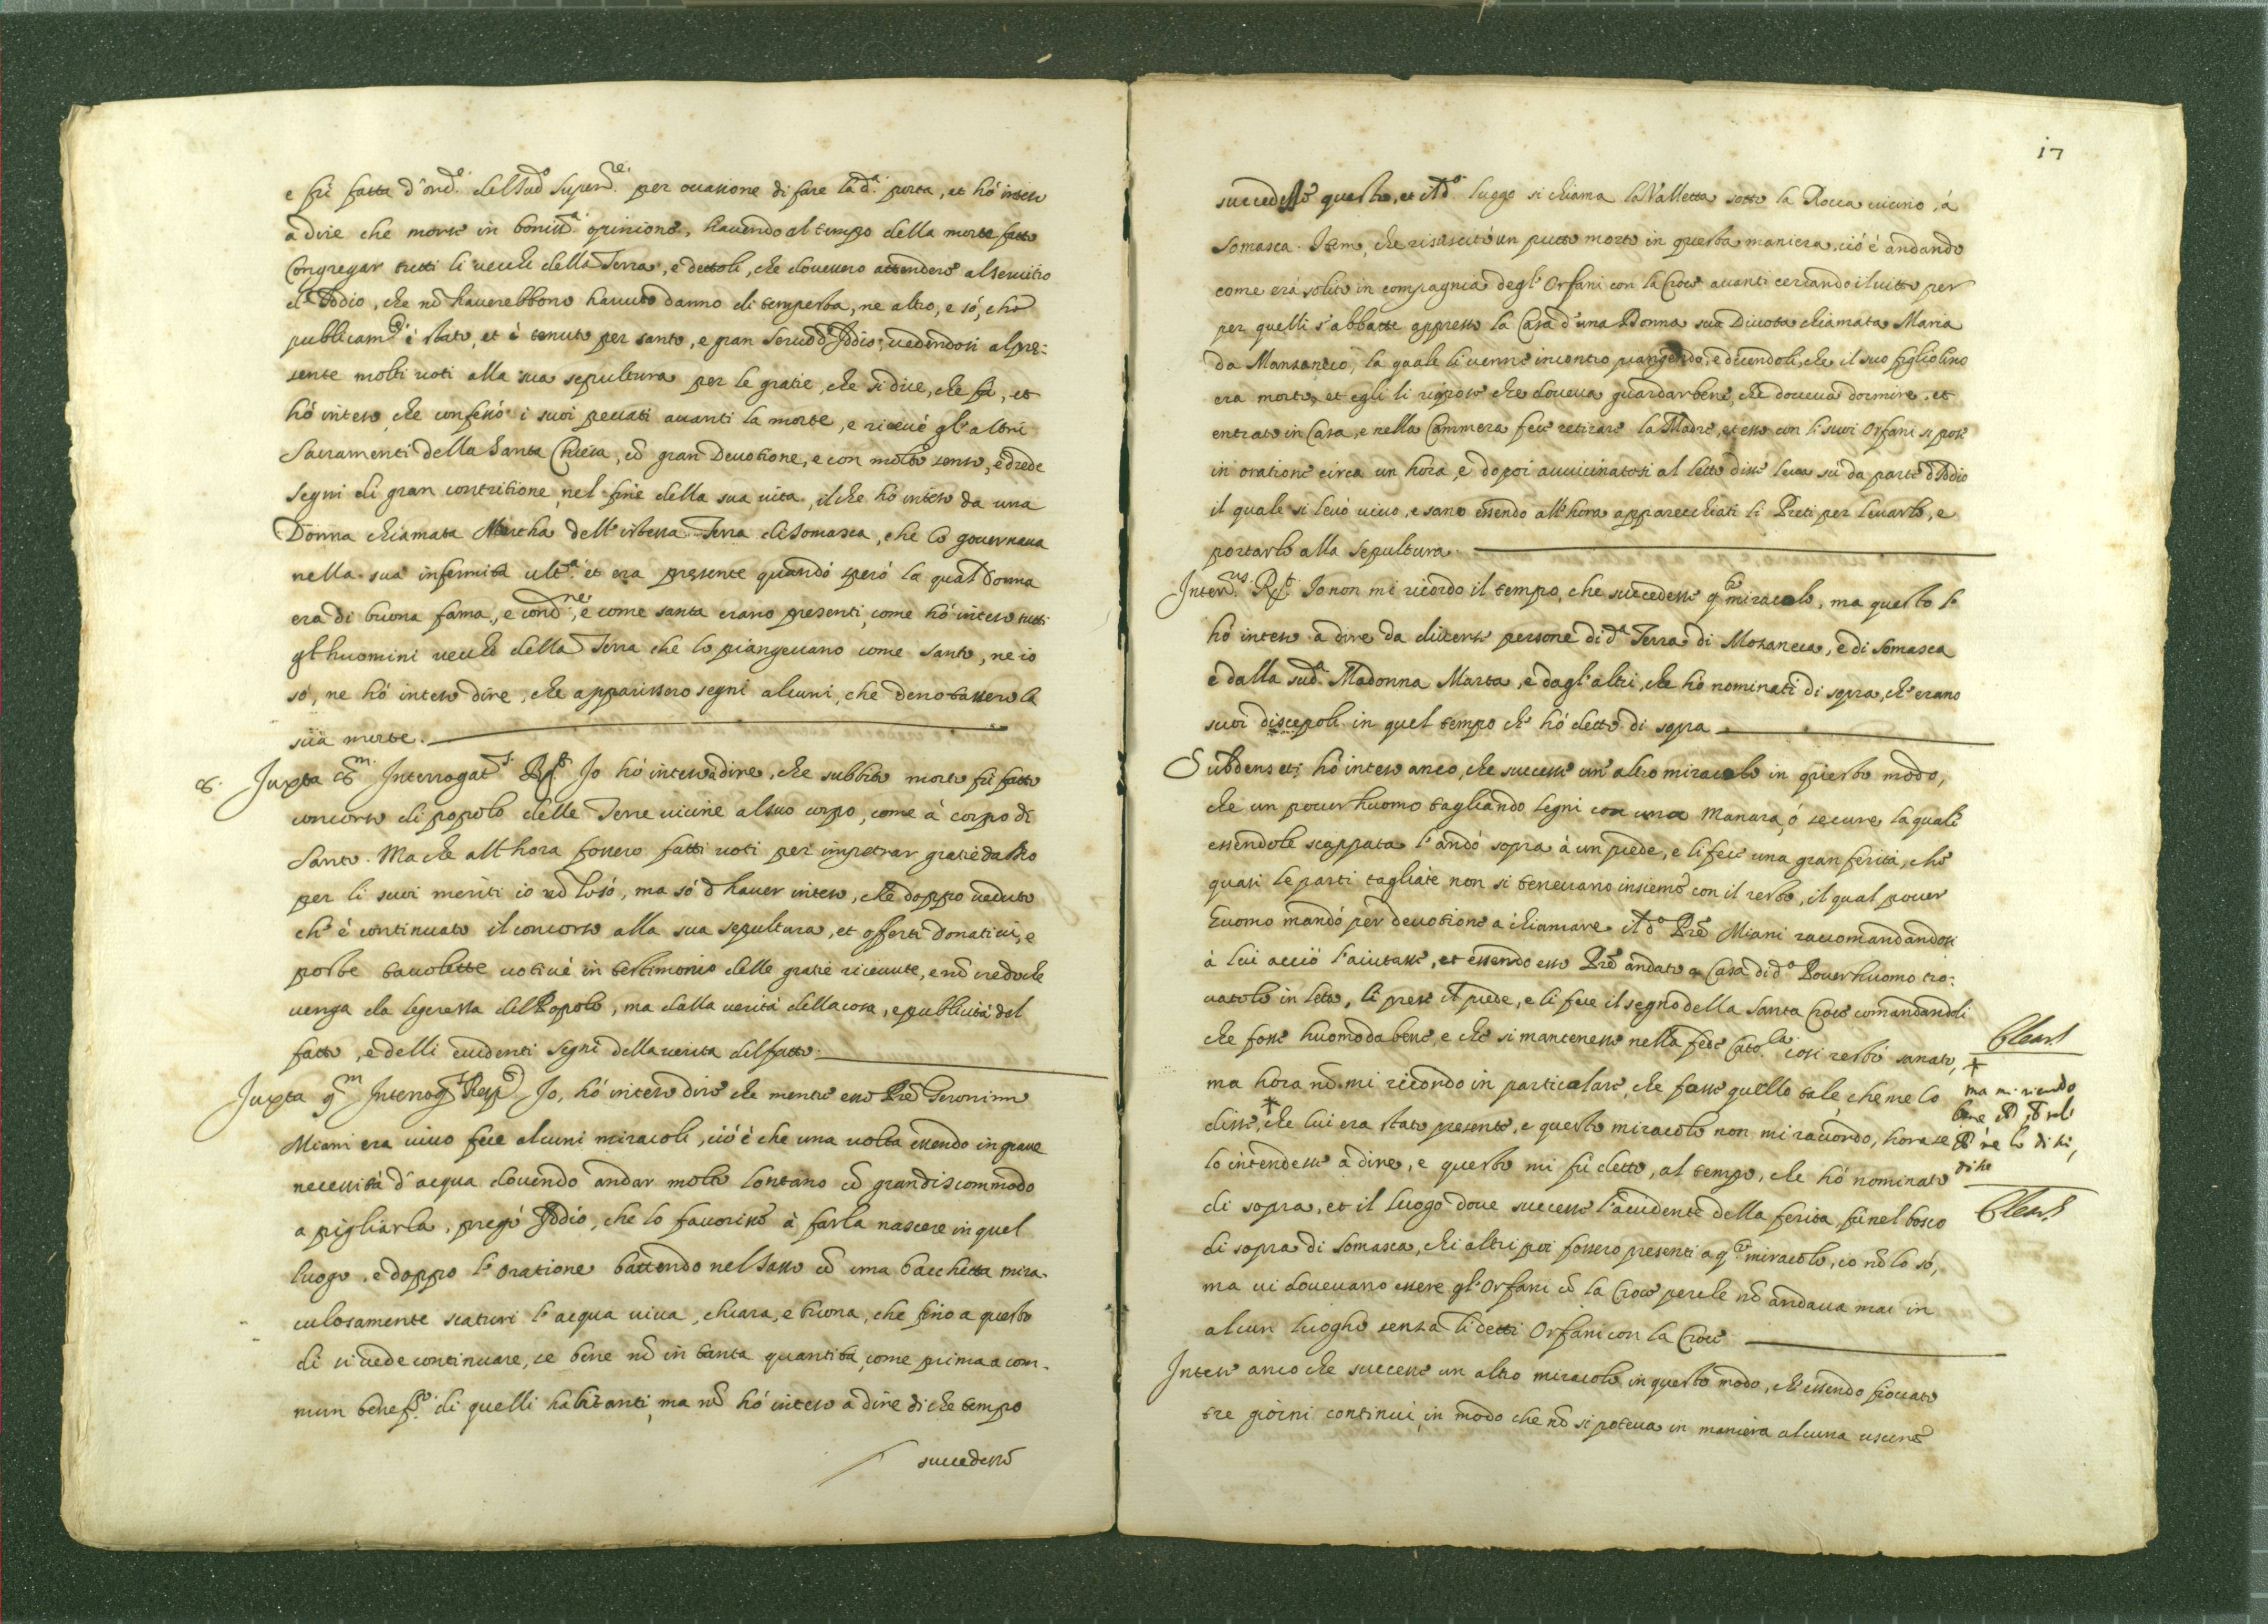 e fù fatta d'ord.e del sud.o Super.re per occasione di fare la d.a porta, et hò inteso
à dire che morse in boniss.a opinione, havendo al tempo della morte fatto
Congregar tutti li vecchi della Terra, e dettoli, che dovessero attendere al servitio
d'Iddio, che nõ haverebbono havuto danno di tempesta, ne altro, e só, che
publicam.e è stato, et è tenuto per santo, e gran Servo d'Iddio, vedendosi al pre:
sente molti voti alla sua sepultura per le gratie, che si dice, che fà, et
hò inteso, che confessò i suoi peccati avanti la morte, e ricevé gl'altri
Sacramenti della Santa Chiesa, cõ gran Devotione, e con molto senso, e diede
segni di gran contritione nel fine della sua vita, il che hó inteso da una
Donna chiamata Martha dell'istessa Terra di Somasca, che lo governava
nella sua infermità ult.a et era presente quando spirò la qual Donna
era di buona fama, e cond.ne, e come santa erano presenti, come hó inteso tutti
gl'huomini vecchi della Terra che lo piangevano come santo, ne io
só, ne hó inteso dire, che apparissero segni alcuni, che denotassero la
sua morte.
8. Juxta 8.m Interrogat.s R.t Io hó inteso à dire, che subbito morto fù fatto
concorso di popolo delle Terre vicine al suo corpo, come à corpo di
Santo. Ma che all'hora fossero fatti voti per impetrar gratie da Dio
per li suoi meriti io nõ lo só, ma só d'haver inteso, che doppo veduto
ch'è continuato il concorso alla sua sepultura, et offerti Donativi, e
poste tavolette votive in testimonio delle gratie ricevute, e nõ credo che
venga da legerezza del Popolo, ma dalla verità della cosa, e publicità del
fatto, e delli evidenti segni della verità del fatto.
Juxta 9.m Interrog.s Resp.t Io, hó inteso dire che mentre esso Prẽ Geronimo
Miani era vivo fece alcuni miracoli, ció è che una volta essendo in grave
necessità d'acqua dovendo andar molto lontano cõ gran discommodo
a pigliarla, pregò Iddio, che lo favorisse à farla nascere in quel
luogo, e doppo l'oratione battendo nel sasso cõ una bacchetta mira-
culosamente scaturì l'acqua viva, chiara, e buona, che fino a questo
dì si vede continuare, se bene nõ in tanta quantità come prima a com-
mun benef.o di quelli habitanti, ma nõ hò inteso à dire di che tempo
succedesse
17
succedesse questo, et il d.o luogo si chiama la Valletta sotto la Rocca vicino à
Somasca. Item, che risuscitò un putto morto in questa maniera, ció è andando
come era solito in compagnia degl'Orfani con la Croce avanti cercando il vitto per
per quelli s'abbatte appresso la Casa d'una Donna sua Divota chiamata Maria
da Manzaneco, la quale li venne incontro piangendo, e dicendoli, che il suo figliolino
era morto, et egli li rispose che doveva guardar bene, che doveva dormire, et
entrato in Casa, e nella Cammera fece retirare la Madre, et esso con li suoi Orfani si pose
in oratione circa un hora, e dopoi avvicinatosi al letto disse leva sù da parte d'Iddio
il quale si levò vivo, e sano essendo all'hora apparecchiati li Preti per levarlo, e
portarlo alla sepultura.
Inter.us R.t Io non mi ricordo il tempo, che succedesse q.to miracolo, ma questo l'
hò inteso à dire da diverse persone di d.a Terra di Mozaneca, e di Somasca
e dalla sud.a Madonna Marta, e dagl'altri, che hò nominati di sopra, ch'erano
suoi discepoli in quel tempo ch'hó detto di sopra
Subdens et: hó inteso anco, che successe un'altro miracolo in questo modo,
che un pover huomo tagliando legni con una Manara, ó secure la quale
essendole scappata l'andò sopra à un piede, e li fece una gran ferita, che
quasi le parti tagliate non si tenevano insieme con il resto, il qual pover
huomo mandò per devotione à chiamare il d.o Prẽ Miani raccomandandosi
à lui acciò l'aiutasse, et essendo esso Prẽ andato a Casa di d.o Pover huomo tro:
vatolo in letto, li prese il piede, e li fece il segno della Santa Croce comandandoli
che fosse huomo da bene, e che si mantenesse nella fede Cato.ca così restò sanato,
ma hora nõ mi ricordo in particolare, che fosse quello tale, che me lo
disse, * che lui era stato presente, e questo miracolo non mi raccordo, hora se
lo intendesse à dire, e questo mi fù detto, al tempo, che hó nominato
di sopra, et il luogo dove successe l'accidente della ferita, fù nel bosco
di sopra di Somasca, chi altri poi fossero presenti a q.to miracolo, io nõ lo só,
ma vi dovevano essere gl'Orfani cõ la Croce perche nõ andava mai in
alcun luogho senza li detti Orfani con la Croce
*
ma mi ricordo
Intesi anco che successe un altro miracolo in questo modo, ch'essendo fioccato
tre giorni continui, in modo che nõ si poteva in maniera alcuna uscire